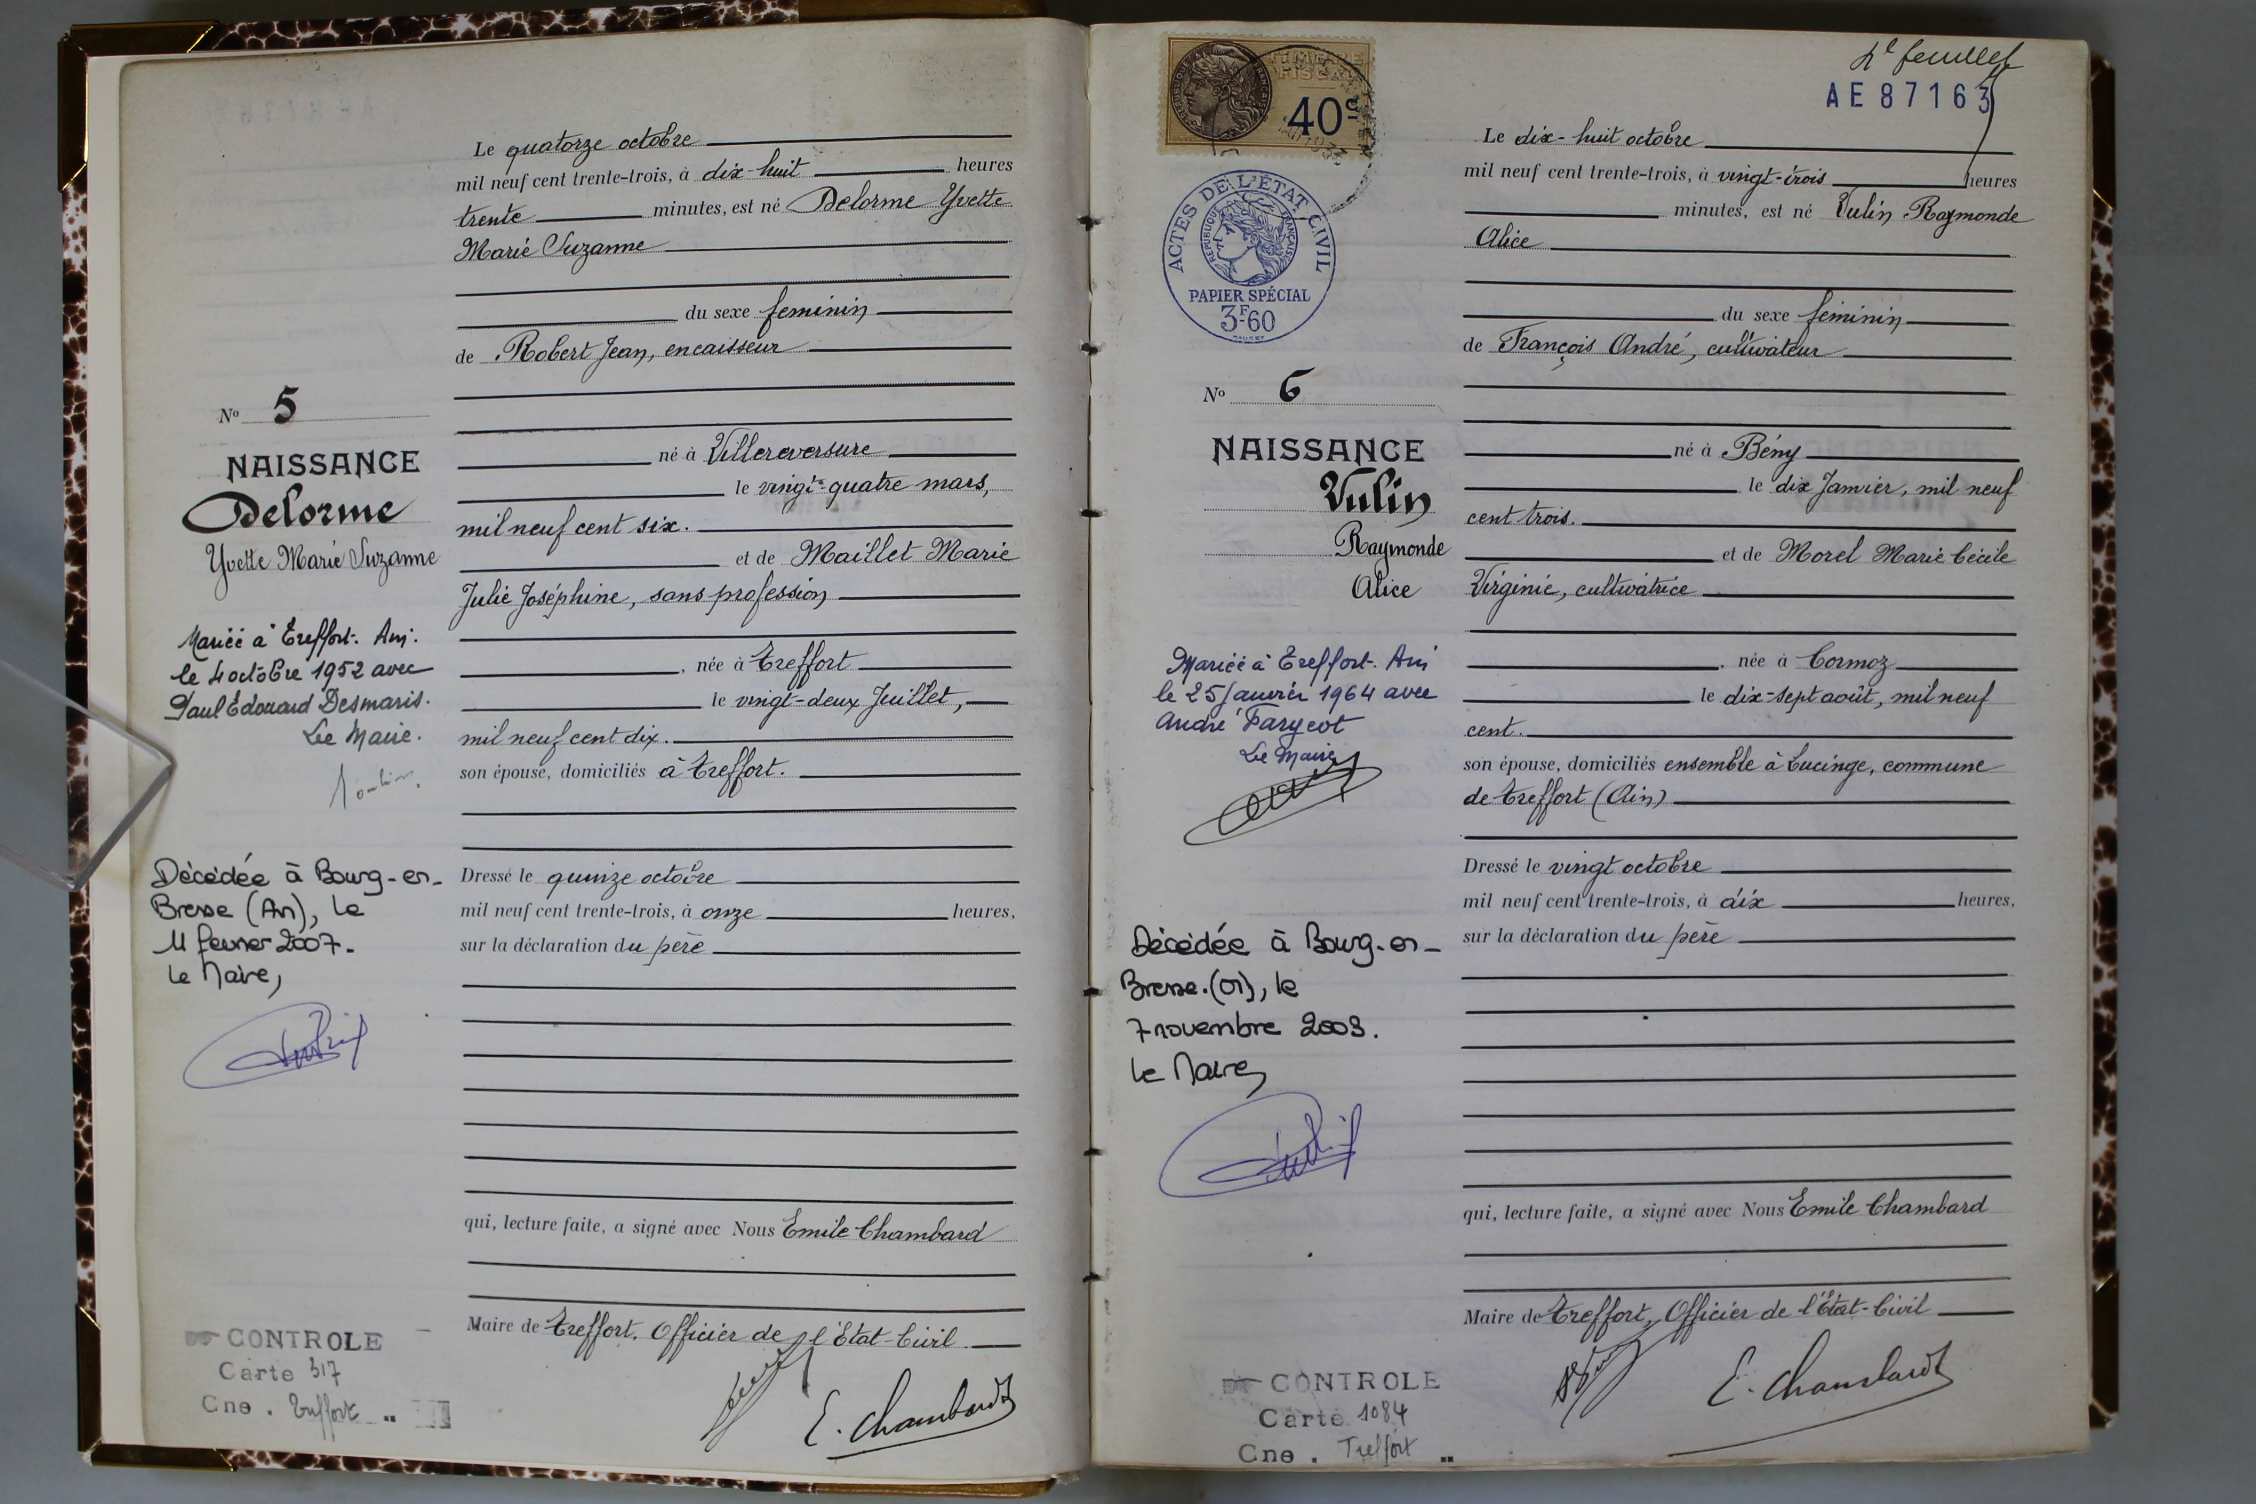 Le quatorze octobre
mil neuf cent trente-trois, à dix-huit heures
trente minutes, est né Delorme Yvette
Marie Suzanne
du sexe feminin
de Robert Jean, encaisseur
né à Villereversure
le vingt-quatre mars,
mil neuf cent six.
et de Maillet Marie
Julie Joséphine, sans profession
née à Treffort
le vingt-deux Juillet,
mil neuf cent dix.
son épouse, domiciliés à Treffort.
Dressé le quinze octobre
mil neuf cent trente-trois, à onze heures,
sur la déclaration du père
qui, lecture faite, a signé avec Nous Emile Chambard
Maire de Treffort, Officier de l'Etat-Civil
E. Chambard
No 5
NAISSANCE
Delorme
Yvette Marie Suzanne
Mariée à Treffort. Ain.
le 4 octobre 1952 avec
Paul Edouard Desmaris.
Le Maire.
Décédée à Bourg-en-
Bresse (Ain), le
11 février 2007.
Le Maire,
CONTROLE
Carte 317
Cne. Treffort
4e feuillet
AE87163
40c
ACTES DE L'ÉTAT CIVIL
RÉPUBLIQUE FRANÇAISE
PAPIER SPÉCIAL
3F60
Le dix-huit octobre
mil neuf cent trente-trois, à vingt-trois heures
minutes, est né Vulin Raymonde
Alice
du sexe féminin
de François André, cultivateur
né à Bény
le dix Janvier, mil neuf
cent trois.
et de Morel Marie Cécile
Virginie, cultivatrice
née à Cormoz
le dix-sept août, mil neuf
cent.
son épouse, domiciliés ensemble à Lucinge, commune
de Treffort (Ain)
Dressé le vingt octobre
mil neuf cent trente-trois, à dix heures,
sur la déclaration du père
qui, lecture faite, a signé avec Nous Emile Chambard
Maire de Treffort, Officier de l'Etat-Civil
E. Chambard
No 6
NAISSANCE
Vulin
Raymonde
Alice
Mariée à Treffort. Ain
le 25 Janvier 1964 avec
André
Le Maire
Décédée à Bourg-en-
Bresse (01), le
7 novembre 2003.
Le Maire,
CONTROLE
Carte 1084
Cne. Treffort